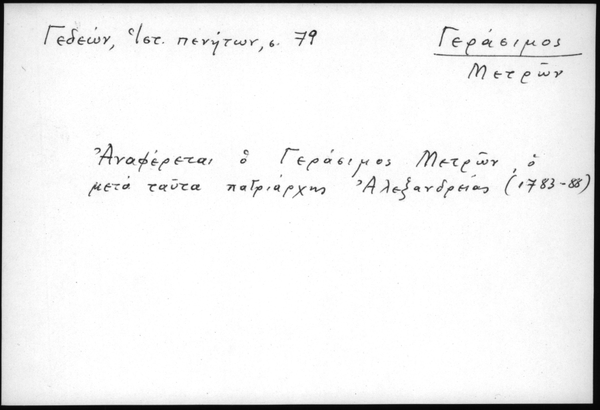 Γεδεών, Ἱστ. πενήτων, σ. 79
Γεράσιμος
Μετρῶν
Ἀναφέρεται ὁ Γεράσιμος Μετρῶν, ὁ
μετά ταῦτα πατριάρχης Ἀλεξανδρείας (1783-88)